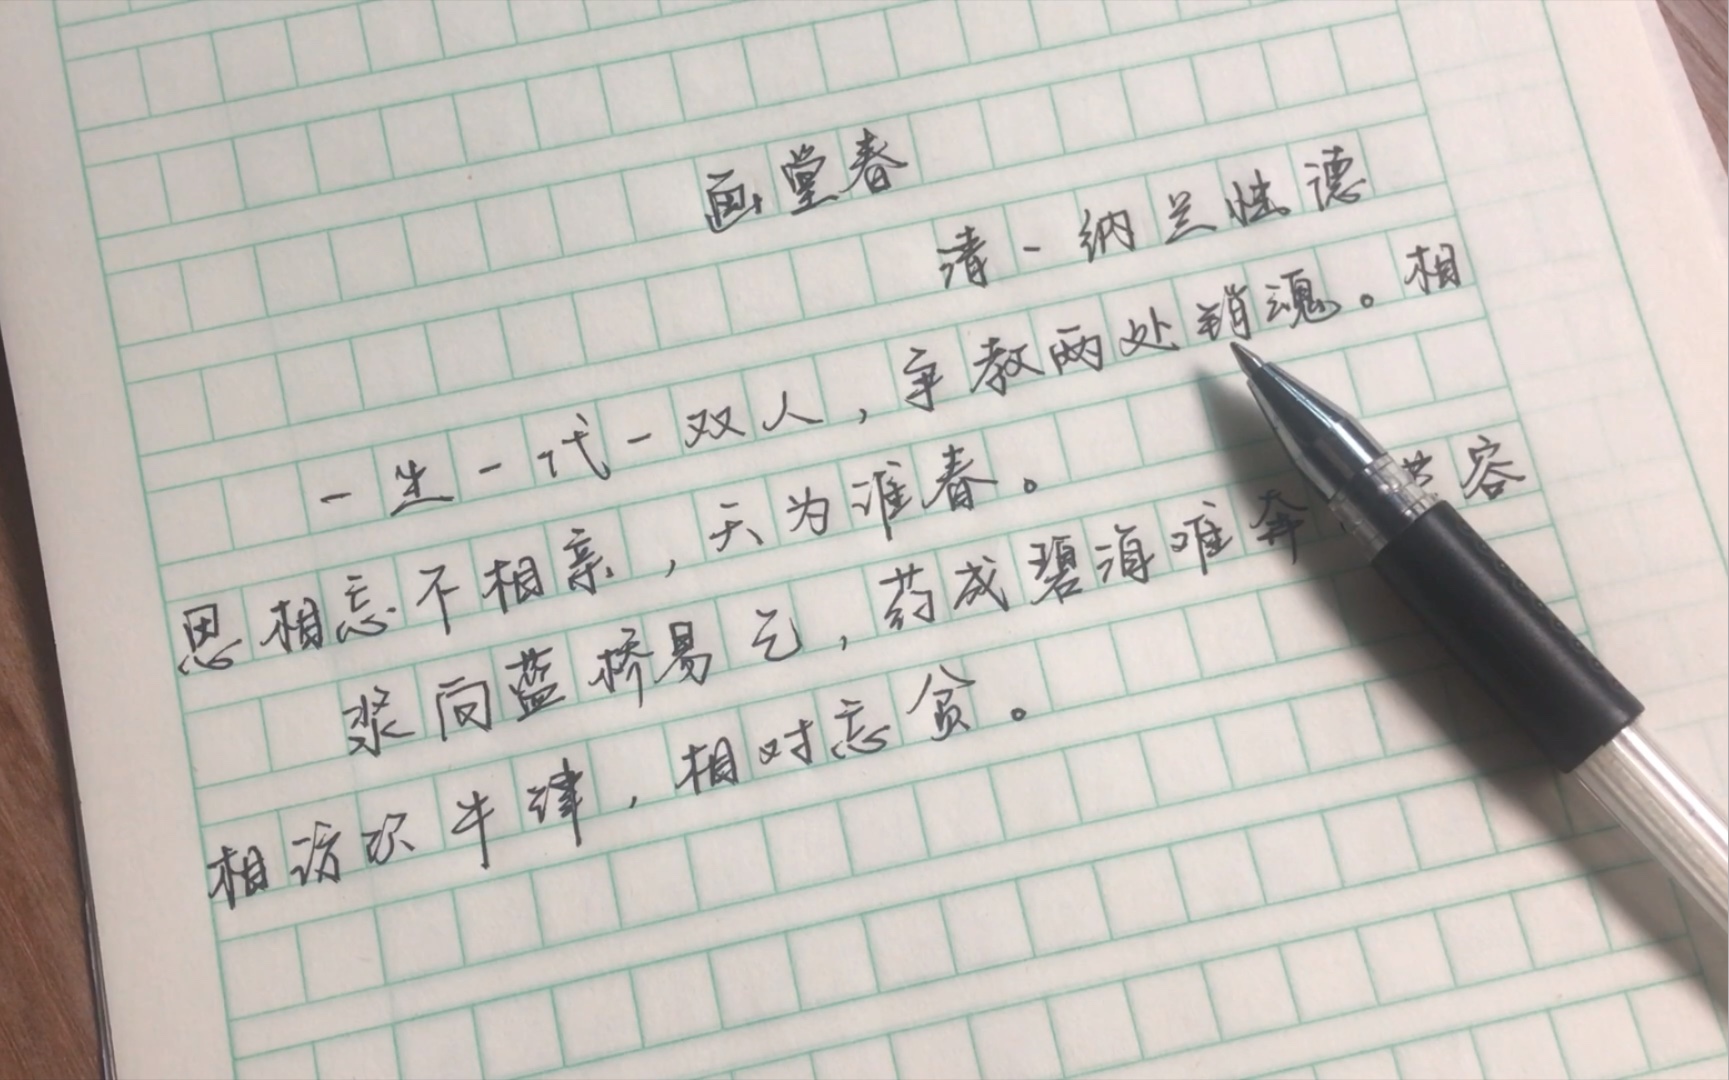 画堂春
清-纳兰性德
一生一代一双人，争教两处销魂。相
思相忘不相亲，天为谁春。
浆向蓝桥易乞，药成碧海难奔 容
相访饮牛津，相对忘贫。